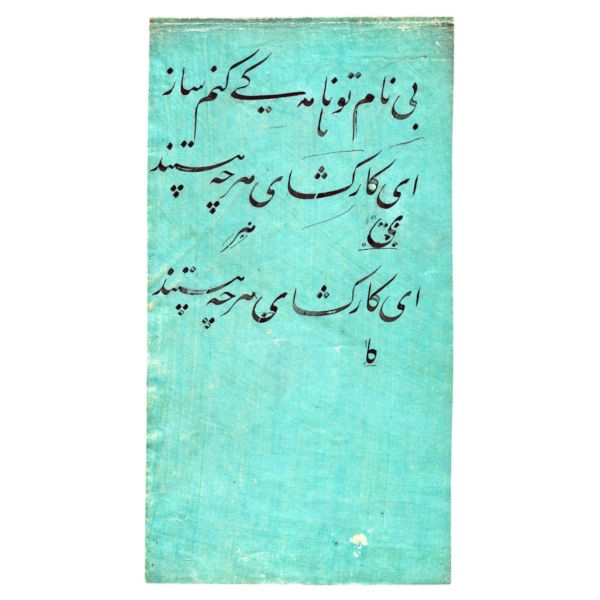 بی نام تو نامه کے کنم ساز
نا
ای کارکشای هرچه هستند
هر
ای کارکشای هرچه هستند
کا